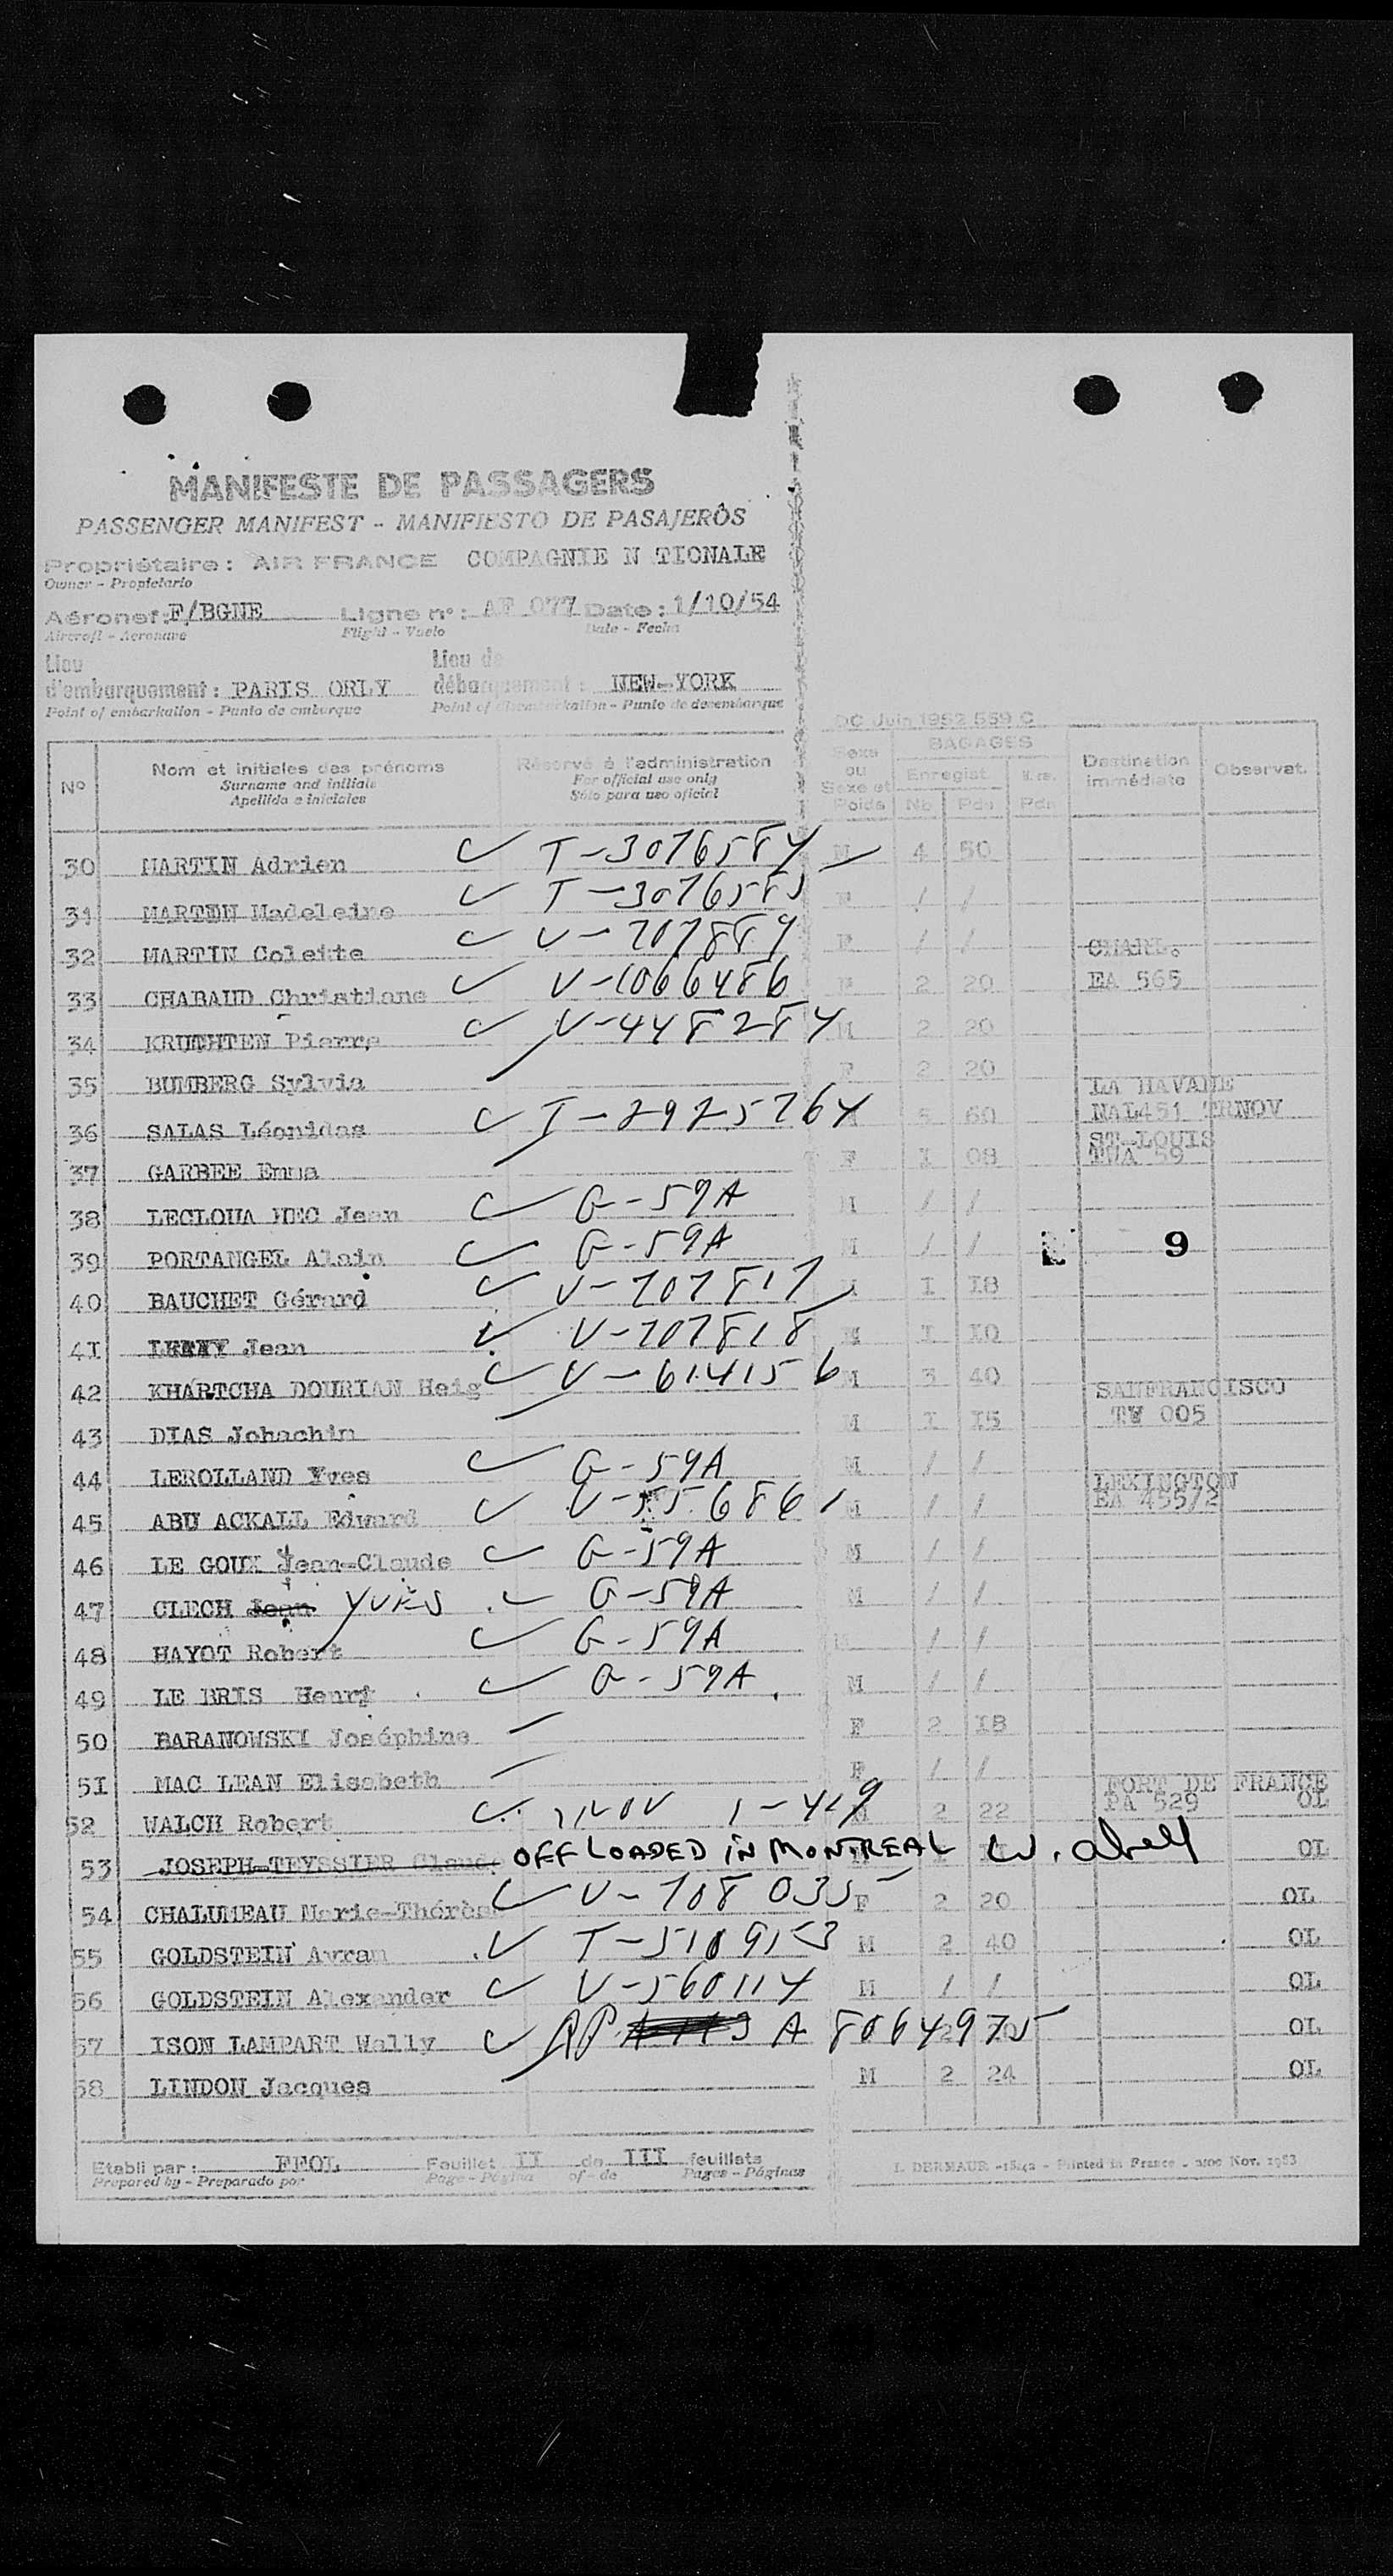 MANIFESTE DE PASSAGERS
PASSENGER MANIFEST - MANIFIESTO DE PASAJEROS
Propriétaire : AIR FRANCE COMPAGNIE N TIONALE
Owner - Propietario
Aéronef : F/BGNE Ligne n° : AF 077 Date : 1/10/54
Aircraft - Aeronave Flight - Vuelo Date - Fecha
Lieu d'embarquement : PARIS ORLY Lieu de débarquement : NEW-YORK
Point of embarkation - Punto de embarque Point of disembarkation - Punto de desembarque
OC Juin 1952 559 C
N° Nom et initiales des prénoms Réservé à l'administration Sexe ou Sexe et Poids BAGAGES Destination immédiate Observat.
Surname and initials For official use only Enregist.
Apellido e iniciales Sólo para uso oficial Nb Pds Pds
30 MARTIN Adrien T-3076584 M 4 50
31 MARTIN Madeleine T-3076583 F / /
32 MARTIN Colette V-707889 F / / CHARL.
33 CHABAUD Christiane V-1066486 F 2 20 EA 565
34 KRUTHTEN Pierre V-448284 M 2 20
35 BUMBERG Sylvia F 2 20 LA HAVANE
36 SALAS Léonidas I-2925764 5 60 NAL451 TRNOV
37 GARBEE Emma F I 08 ST-LOUIS TWA 59
38 LECLOUA NEC Jean G-59A M / /
39 PORTANGEL Alain G-59A M / / 9
40 BAUCHET Gérard V-707817 M I I8
4I Jean V-707818 M I I0
42 KHARTCHA DOURIAN Heig V-614156 M 3 40 SANFRANCISCO
43 DIAS Johachin M I I5 TW 005
44 LEROLLAND Yves G-59A M / / LEXINGTON
45 ABU ACKALL Edward V-556861 M / / EA 455/2
46 LE GOUX Jean-Claude G-59A M / /
47 CLECH Jean YVES G-59A M / /
48 HAYOT Robert G-59A / /
49 LE BRIS Henri G-59A M / /
50 BARANOWSKI Joséphine F 2 I8
5I MAC LEAN Elisabeth F / / FORT DE FRANCE
52 WALCH Robert M 2 22 PA 529 OL
53 JOSEPH-TEYSSIER Claude OFF LOADED IN MONTREAL W. OL
54 CHALUMEAU Marie-Thérèse V-708035 F 2 20 OL
55 GOLDSTEIN Avram T-5109153 M 2 40 OL
56 GOLDSTEIN Alexander V-560114 M / / OL
57 ISON LAMPART Wally A 8064975 OL
58 LINDON Jacques M 2 24 OL
Etabli par : FFOL Feuillet II de III feuillets
Prepared by - Preparado por Page - Página of - de Pages - Páginas
Printed in France - Nov. 1953